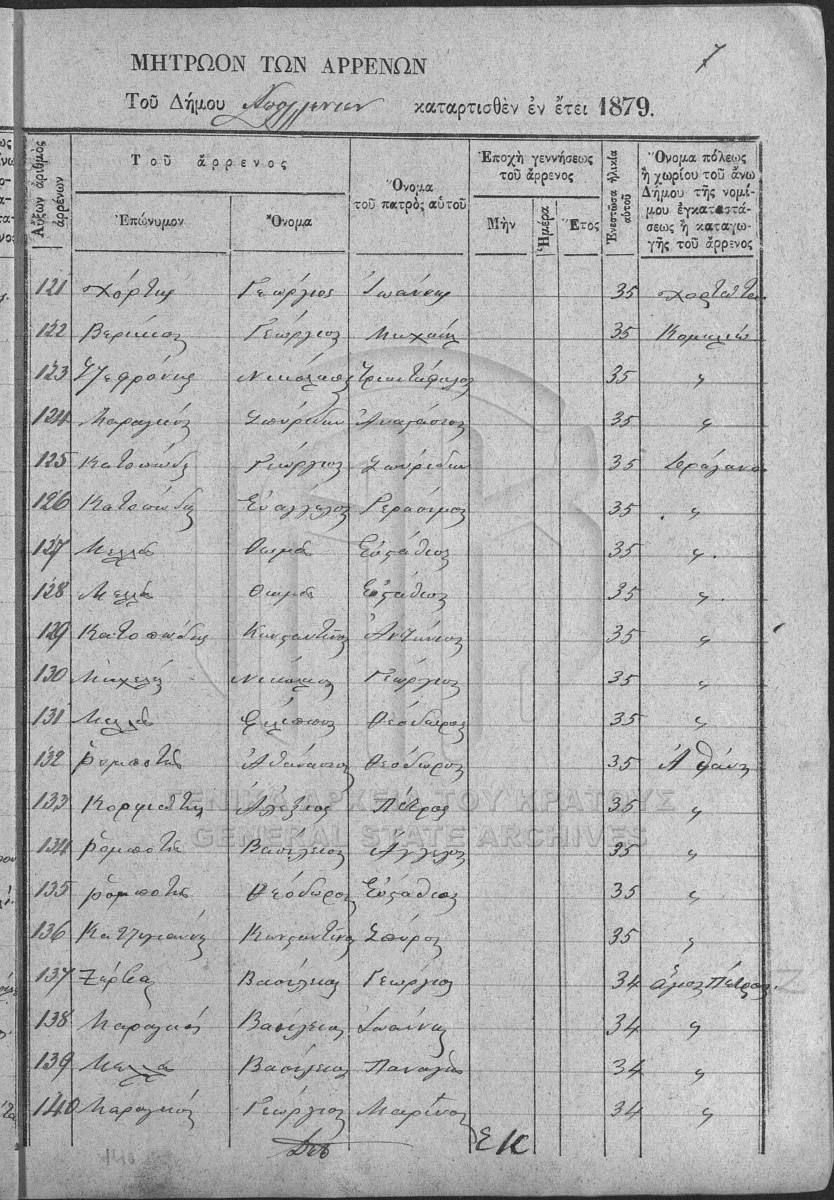 7
ΜΗΤΡΩΟΝ ΤΩΝ ΑΡΡΕΝΩΝ
Τοῦ Δήμου Ἀπολλωνίων καταρτισθὲν ἐν ἔτει 1879.
Αὔξων ἀριθμὸς ἀρρένων
Τοῦ ἄρρενος
Ἐπώνυμον
Ὄνομα
Ὄνομα τοῦ πατρὸς αὐτοῦ
Ἐποχὴ γεννήσεως τοῦ ἄρρενος
Μὴν
Ἡμέρα
Ἔτος
Ἐνεστῶσα ἡλικία αὐτοῦ
Ὄνομα πόλεως ἢ χωρίου τοῦ ἄνω Δήμου τῆς νομίμου ἐγκαταστάσεως ἢ καταγωγῆς τοῦ ἄρρενος
121 Χόρτης Γεώργιος Ἰωάννης 35 Χορτάτα
122 Βερύκιος Γεώργιος Μιχαήλ 35 Κομηλιώ
123 Νικόλαος Τριαντάφυλος 35 〃
124 Μαραγκός Σπυρίδων Ἀναστάσιος 35 〃
125 Κατοπώδης Γεώργιος Σπυρίδων 35 Δράγανο
126 Κατοπώδης Εὐάγγελος Γεράσιμος 35 〃
127 Μελλάς Θωμάς Εὐστάθιος 35 〃
128 Μελλάς Θωμάς Εὐστάθιος 35 〃
129 Κατοπώδης Κωνσταντῖνος Ἀντώνιος 35 〃
130 Νικόλαος Γεώργιος 35 〃
131 Μελλάς Φίλιππος Θεόδωρος 35 〃
132 Ῥομποτής Ἀθανάσιος Θεόδωρος 35 Ἀθάνι
133 Κορφιάτης Ἀλέξιος Πέτρος 35 〃
134 Ῥομποτής Βασίλειος Ἄγγελος 35 〃
135 Ῥομποτής Θεόδωρος Εὐστάθιος 35 〃
136 Κωνσταντῖνος Σπύρος 35 〃
137 Ζέρβας Βασίλειος Γεώργιος 34 Ἅγιος Πέτρος
138 Μαραγκός Βασίλειος Ἰωάννης 34 〃
139 Μελλάς Βασίλειος Παναγής 34 〃
140 Μαραγκός Γεώργιος Μαρῖνος 34 〃
140
ΓΕΝΙΚΑ ΑΡΧΕΙΑ ΤΟΥ ΚΡΑΤΟΥΣ
GENERAL STATE ARCHIVES